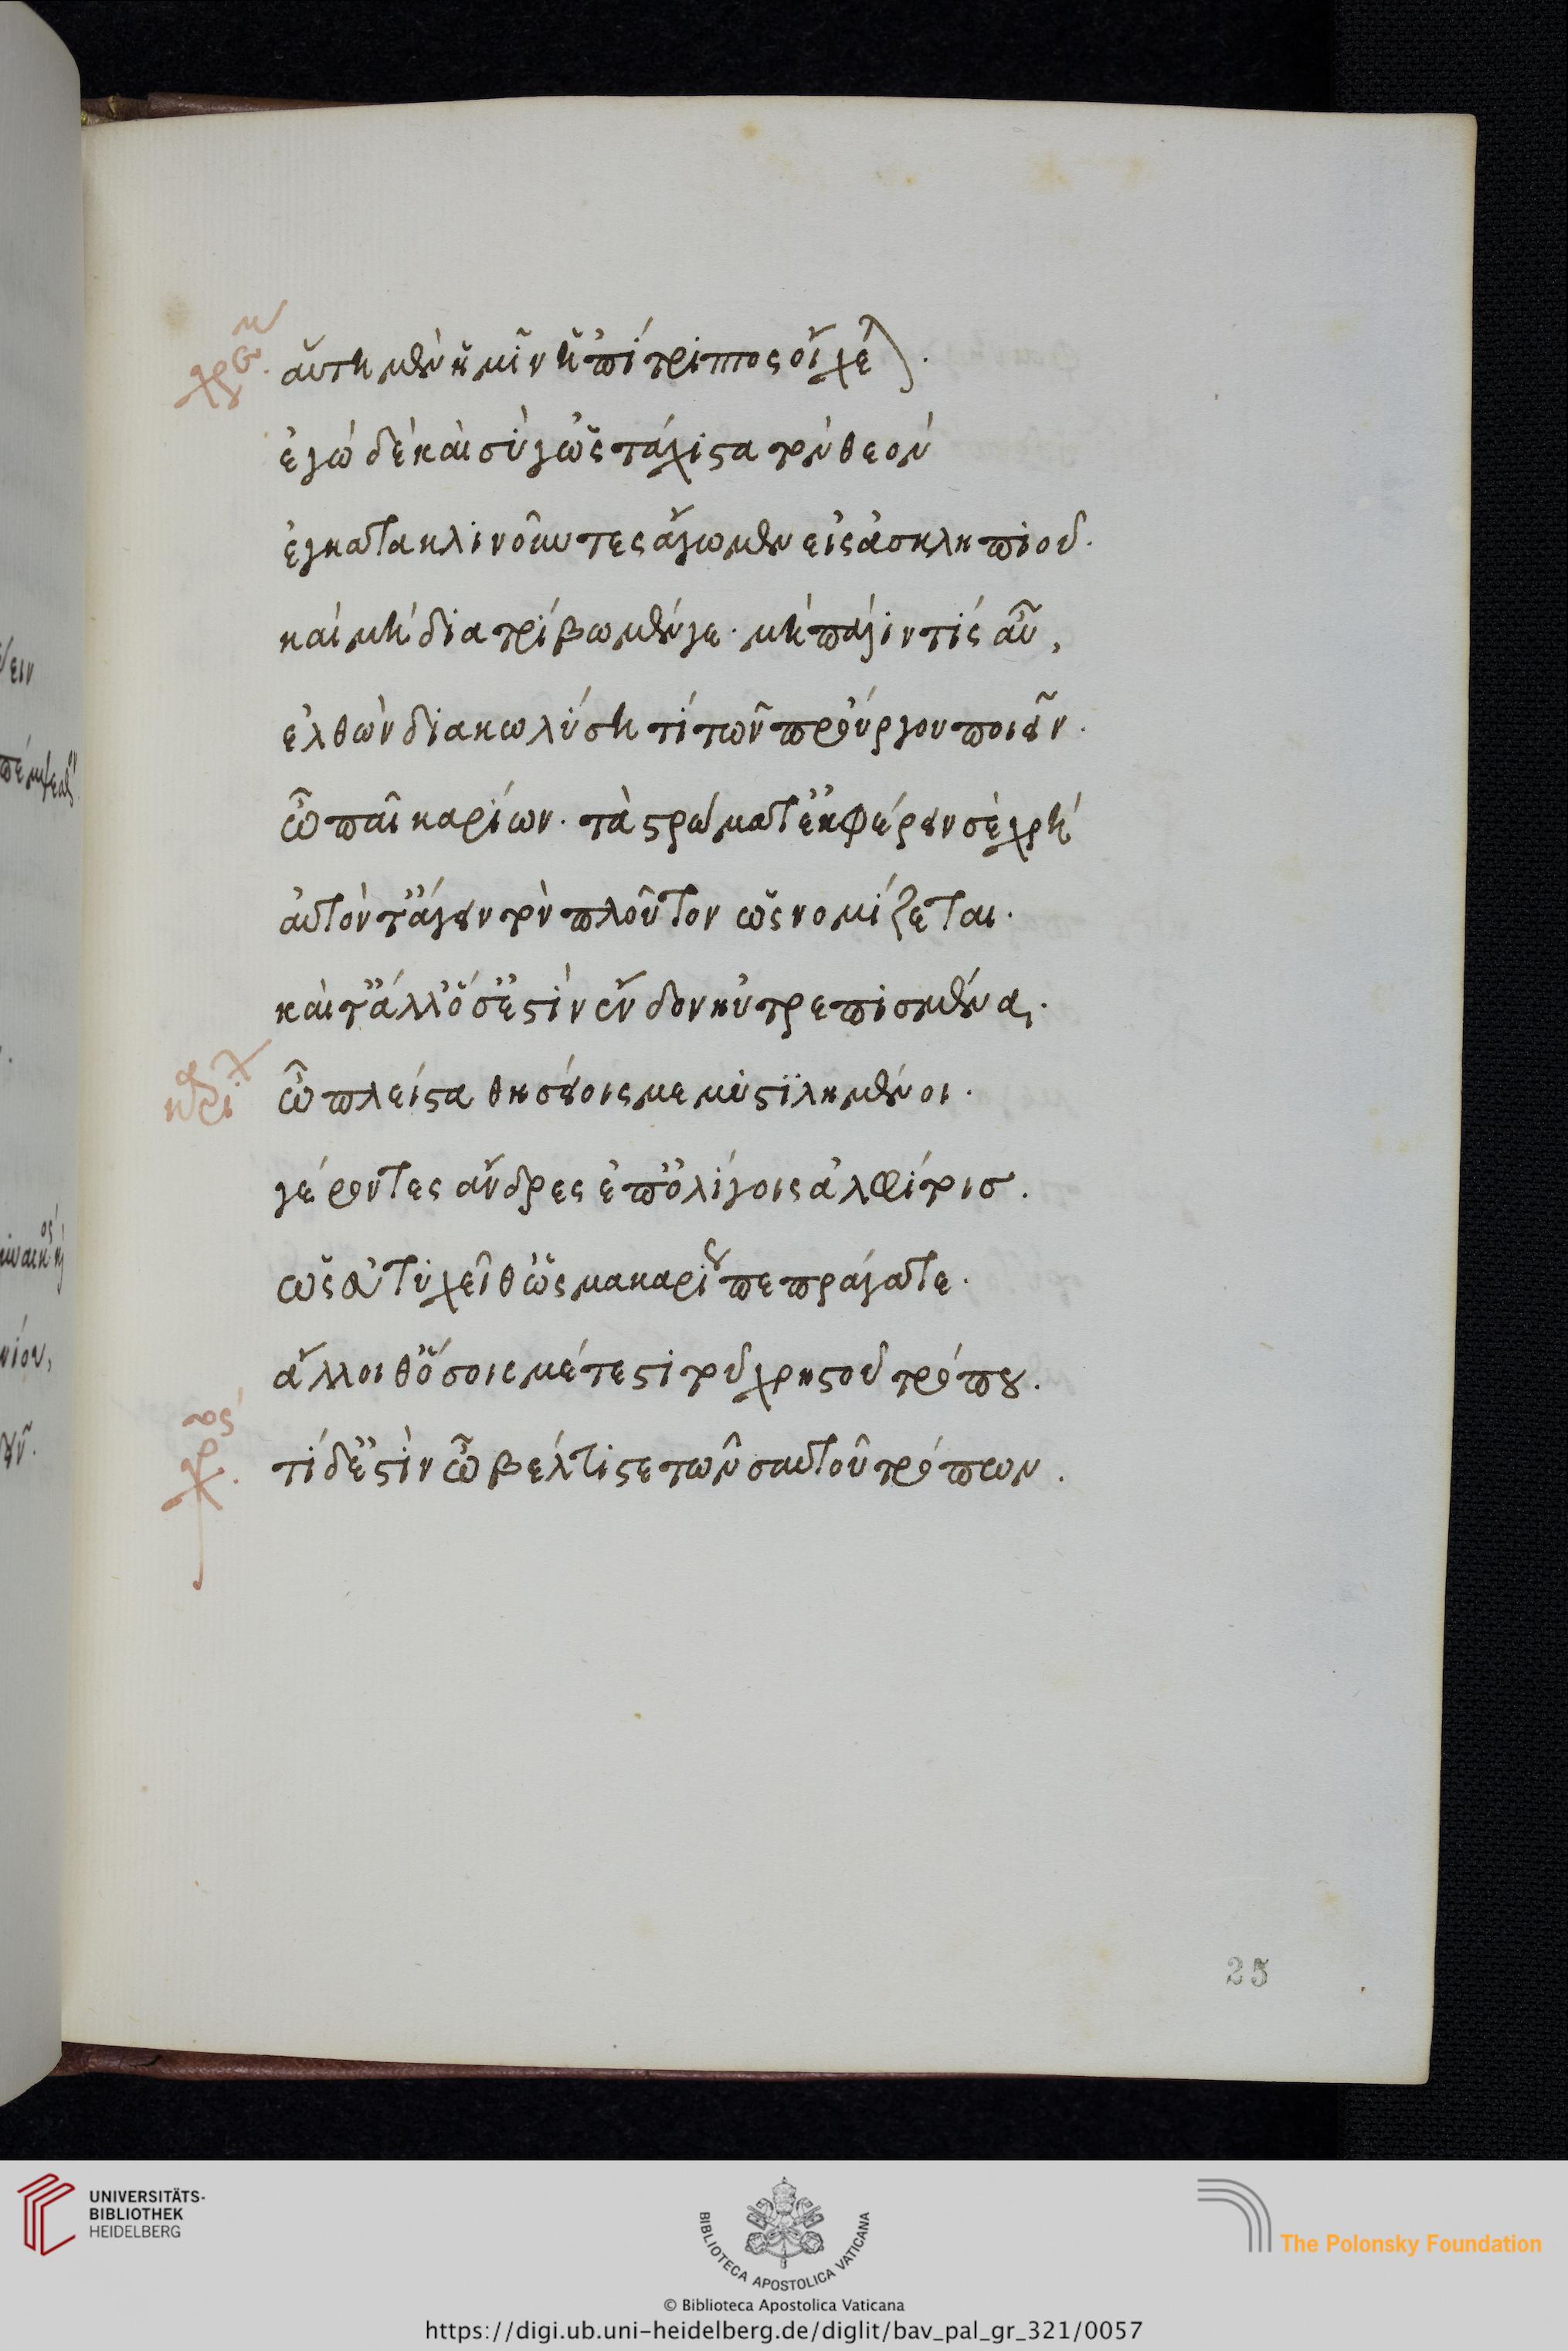 χρε μ
αὕτη μὲν ἡμῖν ἡ ᾽πίτριπτος οἴχεται.
ἐγὼ δὲ καὶ σύ γ᾽ ὡς τάχιστα τὸν θεὸν
ἐγκατακλινοῦντες ἄγωμεν εἰς ἀσκληπιοῦ.
καὶ μὴ διατρίβωμέν γε. μὴ πάλιν τίς αὖ,
ἐλθὼν διακωλύσῃ τί τῶν προύργου ποιεῖν.
ὦ παῖ καρίων. τὰ στρώματ᾽ ἐκφέρειν σὲ χρὴ
αὐτόν τ᾽ ἄγειν τὸν πλοῦτον ὡς νομίζεται.
καὶ τἄλλ᾽ ὅσ᾽ ἐστὶν ἔνδον ηὐτρεπισμένα.
καρι
ὦ πλεῖστα θησείοις μεμυστιλημένοι.
γέροντες ἄνδρες ἐπ᾽ ὀλίγοις ἀλφίτοισ.
ὡς εὐτυχεῖθ᾽ ὡς μακαρίως πεπράγατε.
ἄλλοι θ᾽ ὅσοις μέτεστι τοῦ χρηστοῦ τρόπου.
χορος
τί δ᾽ ἐστὶν ὦ βέλτιστε τῶν σαυτοῦ τρόπων.
25
UNIVERSITÄTS-
BIBLIOTHEK
HEIDELBERG
BIBLIOTECA APOSTOLICA VATICANA
The Polonsky Foundation
© Biblioteca Apostolica Vaticana
https://digi.ub.uni-heidelberg.de/diglit/bav_pal_gr_321/0057